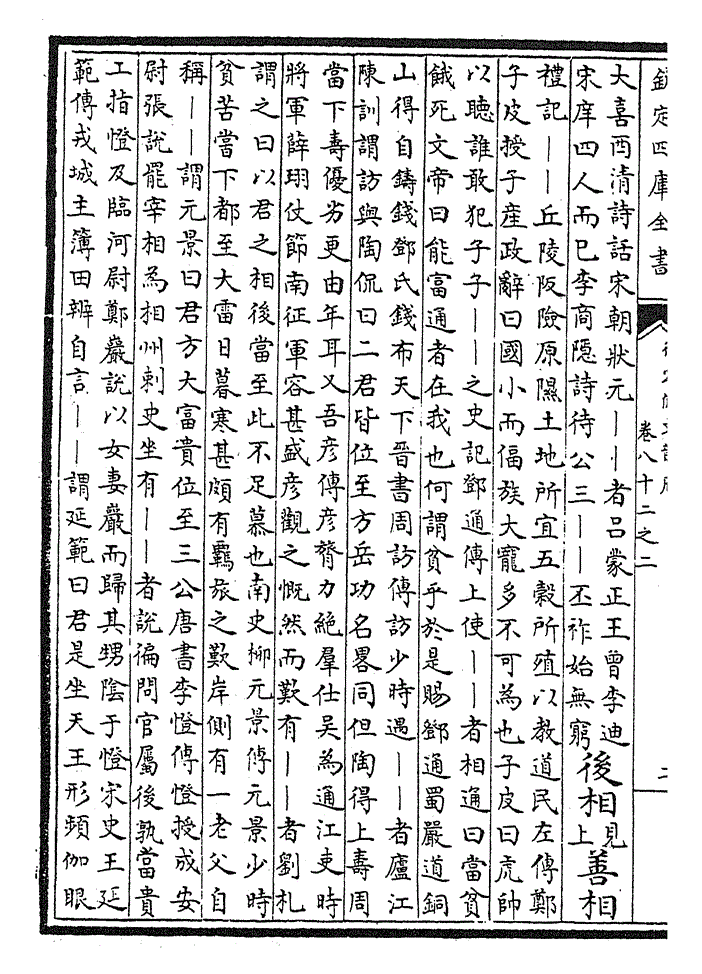 欽定四庫全書
卷八十二之二
二
大喜西清詩話宋朝狀元——者吕蒙正王曾李迪
宋庠四人而已李商隱詩待公三——丕祚始無窮
後相見上善相
禮記——丘陵阪險原隰土地所宜五穀所殖以教道民左傳鄭
子皮授子産政辭曰國小而偪族大寵多不可為也子皮曰虎帥
以聽誰敢犯子子——之史記鄧通傳上使——者相通曰當貧
餓死文帝曰能富通者在我也何謂貧乎於是賜鄧通蜀嚴道銅
山得自鑄錢鄧氏錢布天下晉書周訪傳訪少時遇——者廬江
陳訓謂訪與陶侃曰二君皆位至方岳功名畧同但陶得上壽周
當下壽優劣更由年耳又吾彦傳彦膂力絶羣仕吳為通江吏時
將軍薛珝仗節南征軍容甚盛彦觀之慨然而歎有——者劉札
謂之曰以君之相後當至此不足慕也南史柳元景傳元景少時
貧苦當下都至大雷日暮寒甚頗有羈旅之歎岸側有一老父自
稱——謂元景曰君方大富貴位至三公唐書李憕傳憕授成安
尉張說罷宰相為相州刺史坐有——者說徧問官屬後孰當貴
工指憕及臨河尉鄭巖說以女妻巖而歸其甥隂于憕宋史王延
範傳戎城主簿田辨自言——謂延範曰君是坐天王形頻伽眼